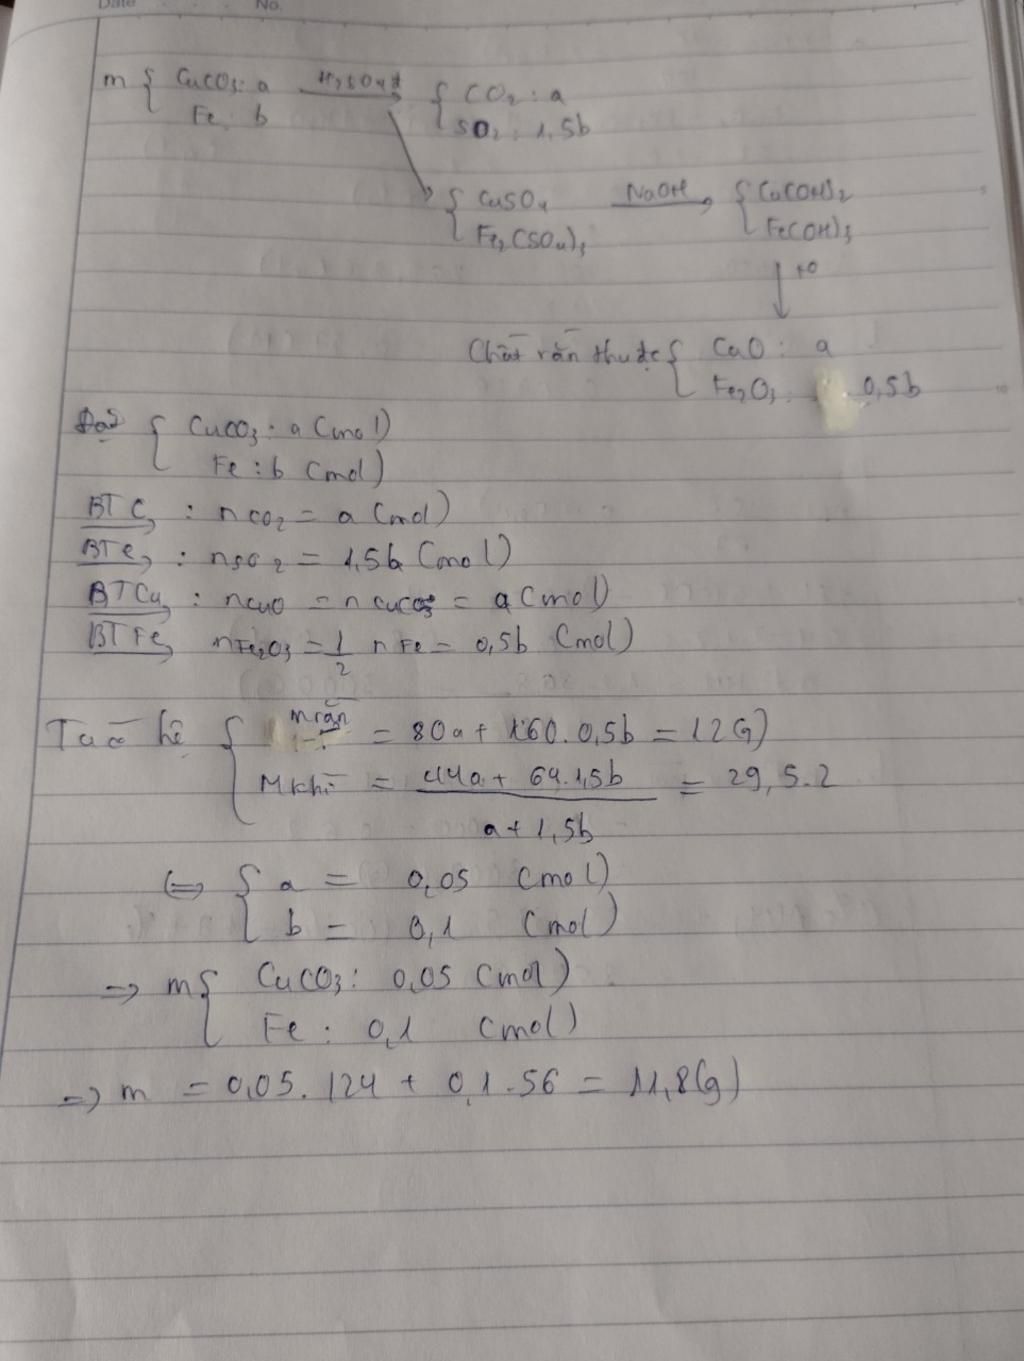 Date No.
m { CuCO₃: a H₂SO₄đ { CO₂ : a
Fe: b SO₂: 1,5b
{ CuSO₄ NaOH { Cu(OH)₂
Fe₂(SO₄)₃ Fe(OH)₃
t⁰
Chất rắn thu đc { CuO : a
Fe₂O₃ : 0,5b
Đặt { CuCO₃ : a (mol)
Fe : b (mol)
BTC : nCO₂ = a (mol)
BTe : nSO₂ = 1,5b (mol)
BTCu : nCuO = nCuCO₃ = a (mol)
BTFe nFe₂O₃ = 1/2 nFe = 0,5b (mol)
Ta có hệ { mrắn = 80a + 160.0,5b = 12(g)
Mkhí = (44a + 64.1,5b)/(a + 1,5b) = 29,5.2
⇔ { a = 0,05 (mol)
b = 0,1 (mol)
⇒ m { CuCO₃: 0,05 (mol)
Fe : 0,1 (mol)
⇒ m = 0,05.124 + 0,1.56 = 11,8(g)